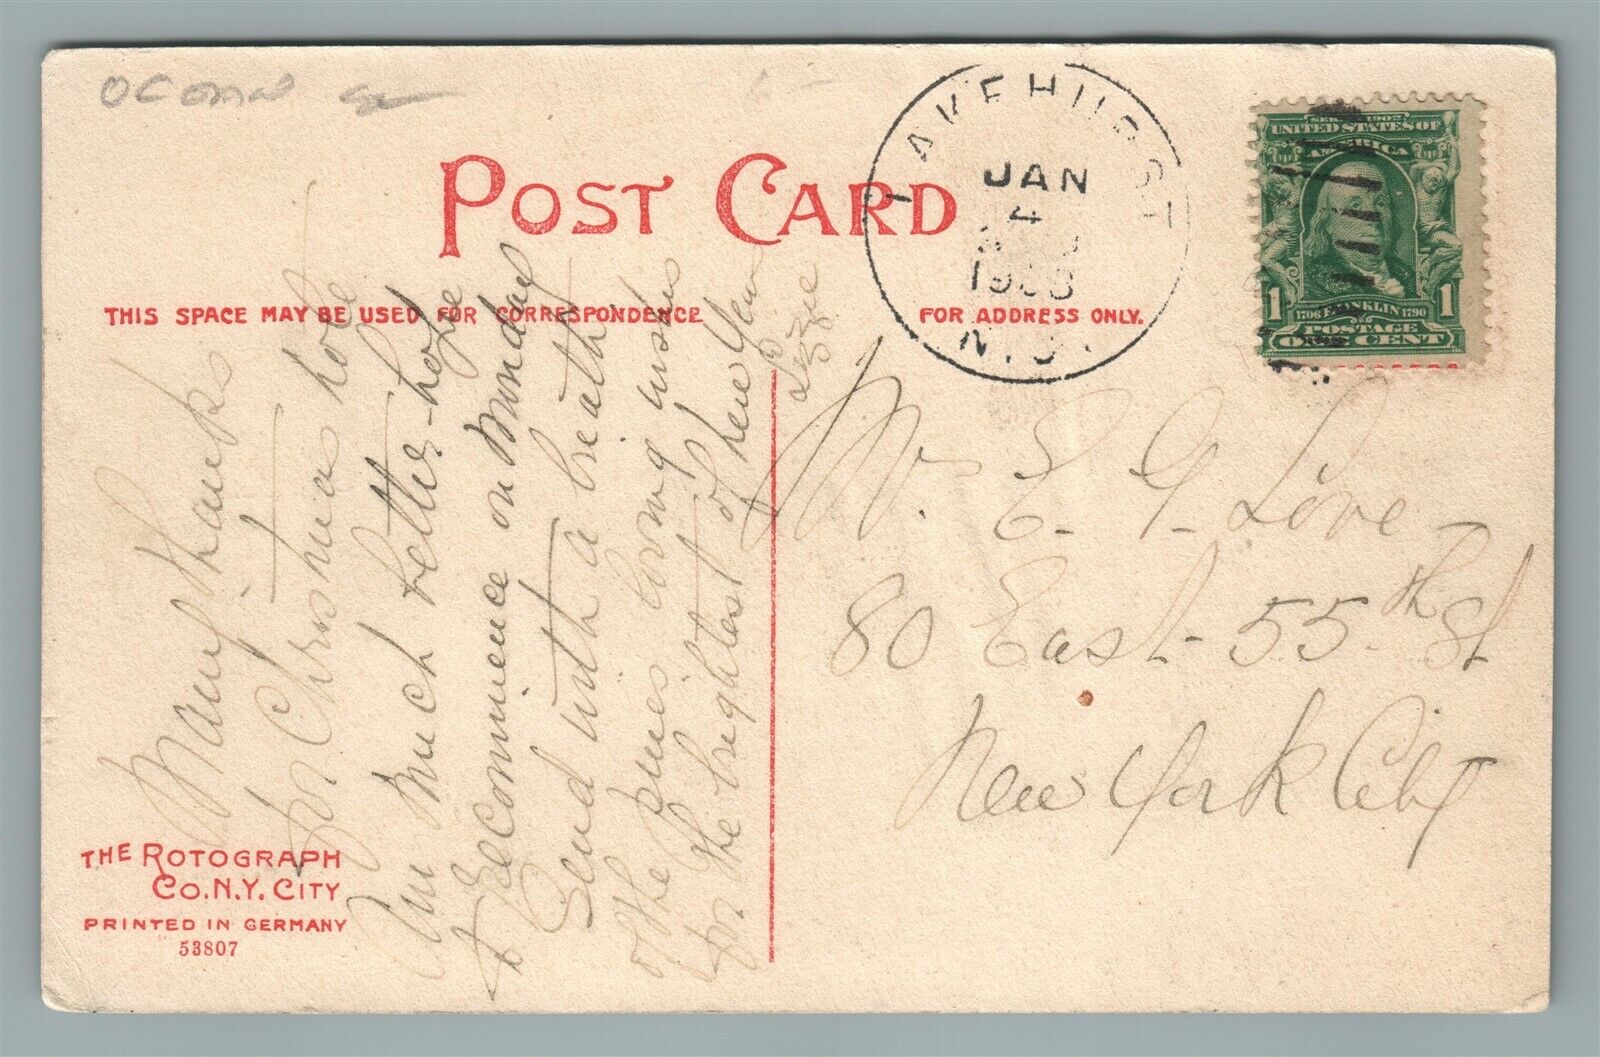 POST CARD
THIS SPACE MAY BE USED FOR CORRESPONDENCE
FOR ADDRESS ONLY.
LAKEHURST
JAN
4
1908
N.J.
SERIES 1902
UNITED STATES OF
AMERICA
1 FRANKLIN 1
1706 1790
POSTAGE
ONE CENT
Many thanks
for Christmas note
Am Much better - hope
to recommence on Monday
Send with a breath
of the pines loving wishes
for the brightest of New Years
Lizzie
Mrs E. G. Love
80 East - 55th St
New York City
THE ROTOGRAPH
CO. N.Y. CITY
PRINTED IN GERMANY
53807